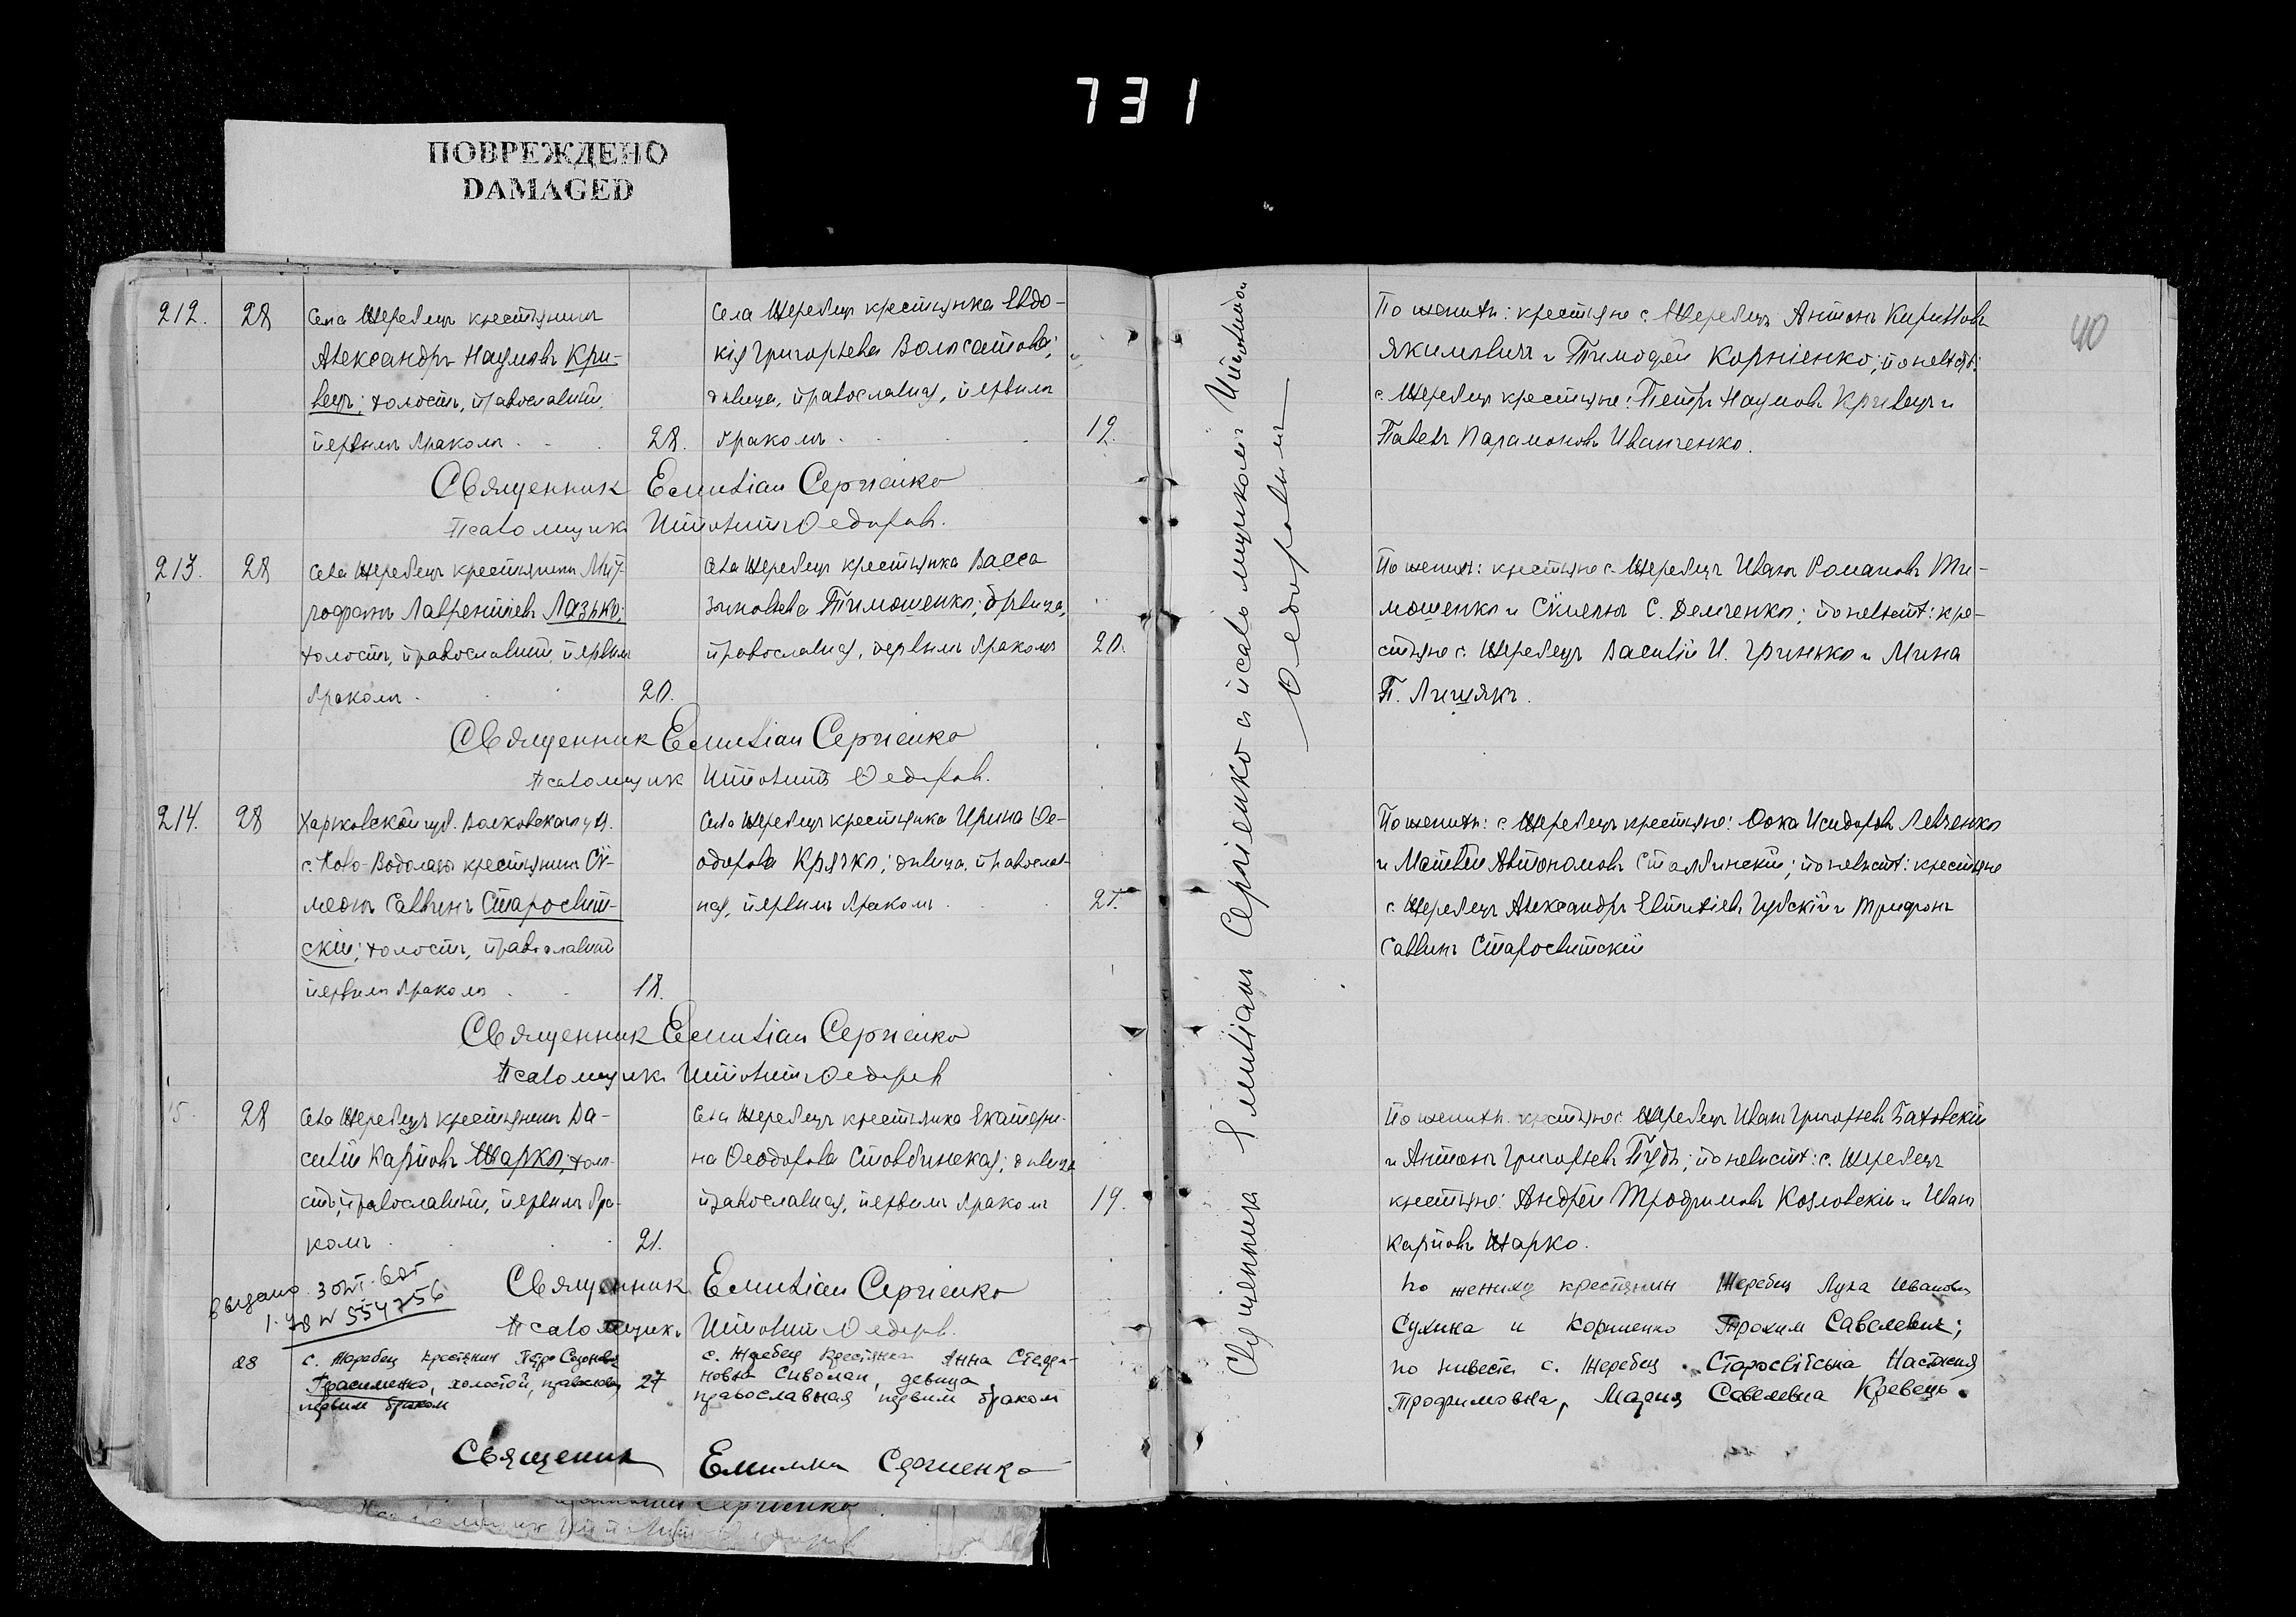 731
ПОВРЕЖДЕНО
DAMAGED
40
212. 28
Села Жеребецъ крестьянинъ
Александръ Наумовъ Кри-
вецъ; холостъ, православный,
первымъ бракомъ . . . 28.
Села Жеребецъ крестьянка Евдо-
кія Григорьева Волосатова;
дѣвица, православная, первымъ
бракомъ . . . 19.
Священникъ Емиліан Сергіенко
Псаломщикъ Ѳедоровъ.
213. 28
Села Жеребецъ крестьянинъ Мит-
рофанъ Лаврентіевъ Лазько;
холостъ, православный, первымъ
бракомъ . . . 20.
Села Жеребецъ крестьянка Васса
Зиновьева Тимошенко; дѣвица,
православная, первымъ бракомъ 20.
Священник Емиліан Сергіенко
Псаломщик Ѳедоровъ.
214. 28
Харьковской губ. Валковскаго уѣз.
с. Ново-Водолаги крестьянинъ Сѵ-
меонъ Саввинъ Старосвит-
скій; холостъ, православный
первымъ бракомъ . . 18.
Села Жеребецъ крестьянка Ирина Ѳе-
одорова Крячко; дѣвица, православ-
ная, первымъ бракомъ . . . 21.
Священник Емиліан Сергіенко
Псаломщикъ Ѳедоровъ
15. 28
Села Жеребецъ крестьянинъ Ва-
силій Карповъ Шарко; холо-
стъ, православный, первымъ бра-
комъ . . . 21.
Села Жеребецъ крестьянка Екатери-
на Ѳеодорова Стовбинская; дѣвица
православная, первымъ бракомъ 19.
Священник Емиліан Сергіенко
Псаломщикъ Ѳедоровъ.
выдано
554756
28
с. Жеребец крестянин Петро
Герасименко, холостой, православ,
первим браком 27
с. Жеребец крестянка Анна Стефа-
новна Сиволап, девица,
православная первим браком
Священик Емилиан Сергиенко
Священникъ Емиліанъ Сергіенко и псаломщикъ
Ѳедоровъ
По женихѣ: крестьяне с. Жеребецъ Антонъ Кирилловъ
Якимовичъ и Тимофей Корніенко; по невѣстѣ:
с. Жеребецъ крестьяне: Петръ Наумовъ Кривецъ и
Павелъ Парамоновъ Иванченко.
По женихѣ: крестьяне с. Жеребецъ Иванъ Романовъ Ти-
мошенко и С. Демченко; по невѣстѣ: кре-
стьяне с. Жеребецъ Василій И. Гринько и Мина
П. Лишякъ.
По женихѣ: с. Жеребецъ крестьяне: Ѳока Исидоровъ Левченко
и Матвѣй Автономовъ Столбинскій; по невѣстѣ: крестьяне
с. Жеребецъ Александръ Евтихіевъ Губскій и Трифонъ
Саввинъ Старосвитскій
По женихѣ крестьяне с. Жеребецъ Иванъ Григорьевъ Батовскій
и Антонъ Григорьевъ Гудь; по невѣстѣ: с. Жеребецъ
крестьяне: Андрей Трофимовъ Козловскій и Иванъ
Карповъ Шарко.
По жениху крестянин Жеребец Лука Иванович
Сухина и Корниенко Трохим Савелевич;
по нивесте с. Жеребец Старосвітська Настасия
Трофимовна, Мария Савелевна Кревець.